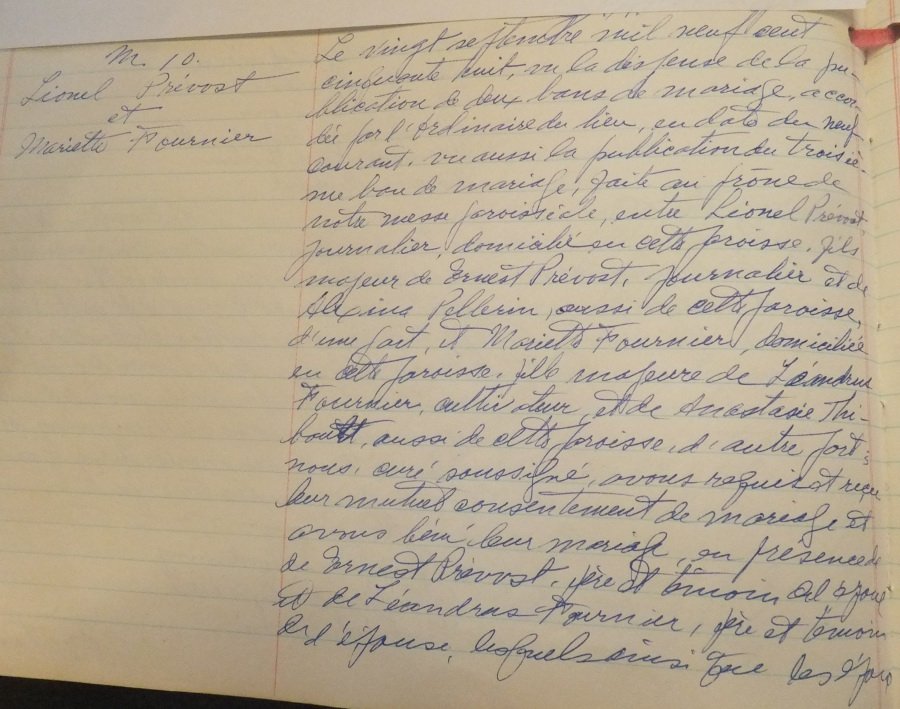 M. 10.
Lionel Prévost
et
Mariette Fournier
Le vingt septembre mil neuf cent
cinquante huit, vu la dispense de la pu-
blication de deux bans de mariage, accor-
dée par l'Ordinaire du lieu, en date du neuf
courant, vu aussi la publication du troisiè-
me ban de mariage, faite au prône de
notre messe paroissiale, entre Lionel Prévost,
journalier, domicilié en cette paroisse, fils
majeur de Ernest Prévost, journalier et de
Alexina Pellerin, aussi de cette paroisse,
d'une part, et Mariette Fournier, domiciliée
en cette paroisse, fille majeure de Léandrus
Fournier, cultivateur, et de Anastasie Thi-
boutt, aussi de cette paroisse, d'autre part;
nous, curé soussigné, avons requis et reçu
leur mutuel consentement de mariage et
avons béni leur mariage, en présence de
de Ernest Prévost, père et témoin de l'époux
et de Léandrus Fournier, père et témoin
de l'épouse, lesquels ainsi que les époux